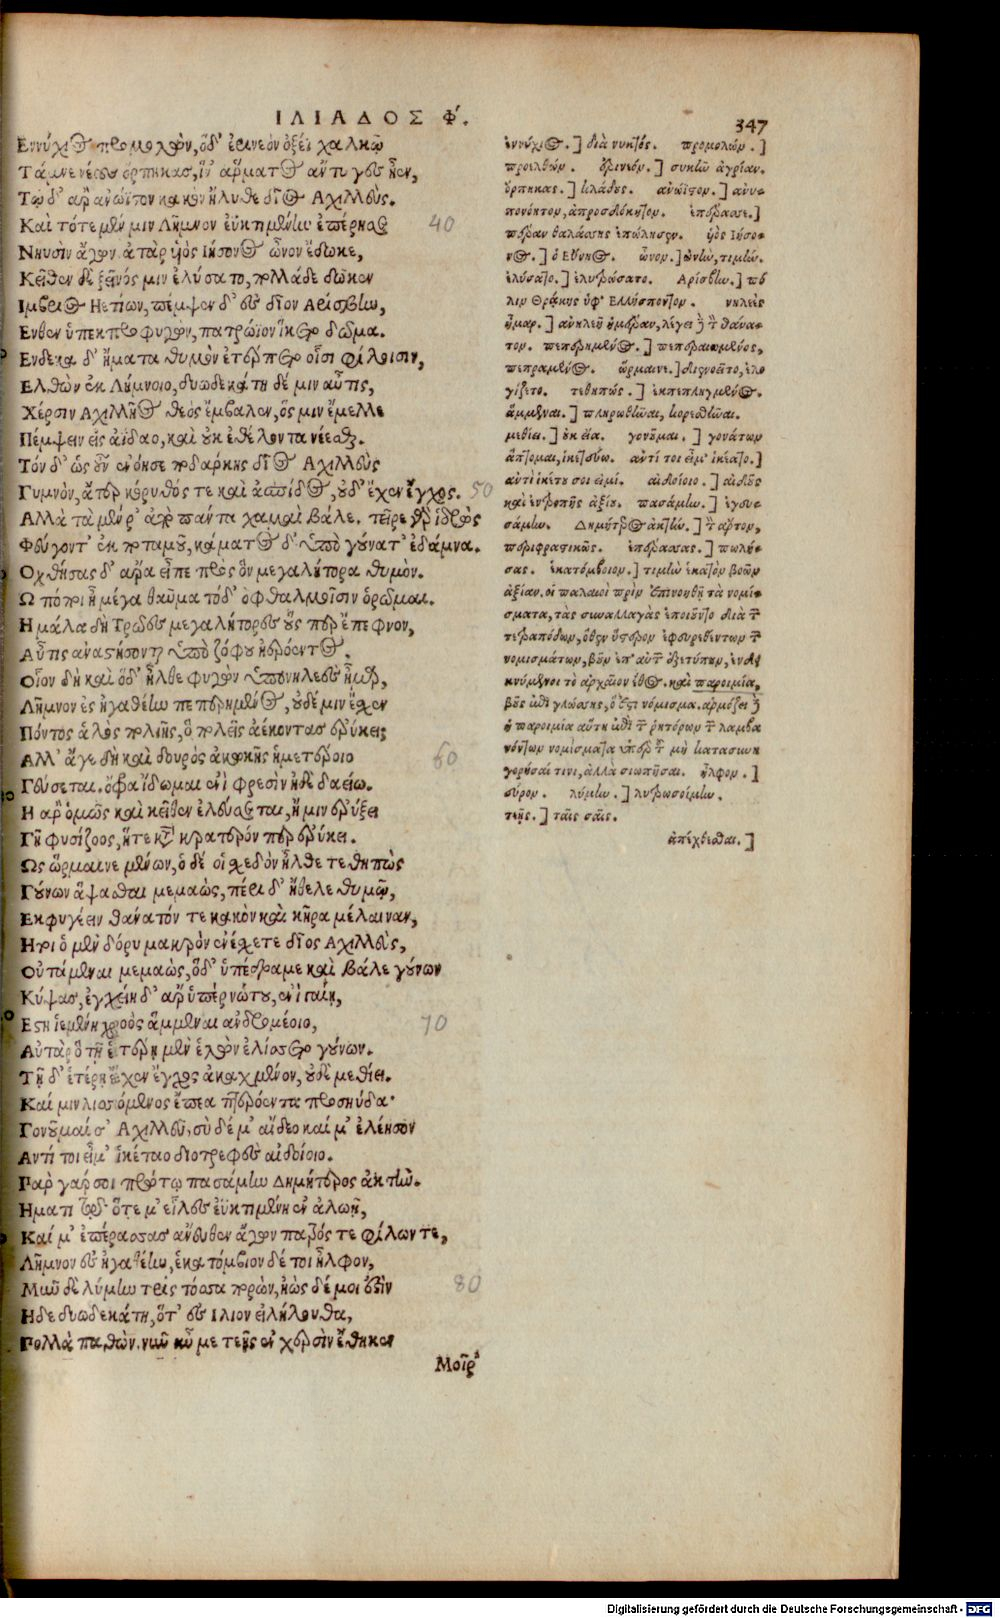 ΙΛΙΑΔΟΣ Φ.
347
Εννύχιος προμολών, ὁ δ' ἐρινεὸν ὀξέϊ χαλκῷ
Τάμνε νέους ὄρπηκας, ἵν' ἅρματος ἄντυγες εἶεν,
Τῷ δ' ἄρ' ἀνώϊστον κακὸν ἤλυθε δῖος Αχιλλεύς.
Καὶ τότε μέν μιν Λῆμνον ἐϋκτιμένην ἐπέρασε
40
Νηυσὶν ἄγων. ἀτὰρ υἱὸς Ιήσονος ὦνον ἔδωκε,
Κεῖθεν δὲ ξεῖνός μιν ἐλύσατο, πολλὰ δὲ δῶκεν
Ιμβριος Ηετίων, πέμψεν δ' ἐς δῖαν Αρίσβην,
Ενθεν ὑπεκπροφυγὼν, πατρώϊον ἵκετο δῶμα.
Ενδεκα δ' ἤματα θυμὸν ἐτέρπετο οἷσι φίλοισιν,
Ελθὼν ἐκ Λήμνοιο, δυωδεκάτῃ δέ μιν αὖτις,
Χέρσιν Αχιλλῆος θεὸς ἔμβαλεν, ὅς μιν ἔμελλε
Πέμψειν εἰς ἀΐδαο, καὶ οὐκ ἐθέλοντα νέεσθαι.
Τὸν δ' ὡς οὖν ἐνόησε ποδάρκης δῖος Αχιλλεὺς
Γυμνὸν, ἄτερ κόρυθός τε καὶ ἀσπίδος, οὐδ' ἔχεν ἔγχος.
50
Αλλὰ τὰ μέν ῥ' ἀπὸ πάντα χαμαὶ βάλε. τεῖρε γὰρ ἱδρὼς
Φεύγοντ' ἐκ ποταμοῦ, κάματος δ' ὑπὸ γούνατ' ἐδάμνα.
Οχθήσας δ' ἄρα εἶπε πρὸς ὃν μεγαλήτορα θυμόν.
Ω πόποι ἦ μέγα θαῦμα τόδ' ὀφθαλμοῖσιν ὁρῶμαι.
Η μάλα δὴ Τρῶες μεγαλήτορες οὕς περ ἔπεφνον,
Αὖτις ἀναστήσονται ὑπὸ ζόφου ἠερόεντος.
Οἷον δὴ καὶ ὅδ' ἦλθε φυγὼν ὑπὸ νηλεὲς ἦμαρ,
Λῆμνον ἐς ἠγαθέην πεπερημένος, οὐδέ μιν ἔσχεν
Πόντος ἁλὸς πολιῆς, ὃ πολεῖς ἀέκοντας ἐρύκει;
Αλλ' ἄγε δὴ καὶ δουρὸς ἀκωκῆς ἡμετέροιο
60
Γεύσεται. ὄφρα ἴδωμαι ἐνὶ φρεσὶν ἠδὲ δαείω.
Η ἄρ' ὁμῶς καὶ κεῖθεν ἐλεύσεται, ἤ μιν ἐρύξει
Γῆ φυσίζοος, ἥτε κατὰ κρατερόν περ ἐρύκει.
Ως ὥρμαινε μένων, ὁ δέ οἱ σχεδὸν ἦλθε τεθηπὼς
Γούνων ἅψασθαι μεμαὼς, πέρι δ' ἤθελε θυμῷ,
Εκφυγέειν θάνατόν τε κακὸν καὶ κῆρα μέλαιναν,
Ητοι ὁ μὲν δόρυ μακρὸν ἀνέσχετο δῖος Αχιλλεὺς,
Οὐτάμεναι μεμαὼς, ὁ δ' ὑπέδραμε καὶ βάλε γούνων
Κύψας, ἐγχείη δ' ἄρ' ὑπὲρ νώτου, ἐνὶ γαίῃ,
Εστη ἱεμένη χροὸς ἄμμεναι ἀνδρομέοιο,
70
Αὐτὰρ ὁ τῇ ἑτέρῃ μὲν ἑλὼν ἐλίσσετο γούνων.
Τῇ δ' ἑτέρῃ ἔχεν ἔγχος ἀκαχμένον, οὐδὲ μεθίει.
Καί μιν λισσόμενος ἔπεα πτερόεντα προσηύδα·
Γουνοῦμαί σ' Αχιλλεῦ, σὺ δέ μ' αἴδεο καί μ' ἐλέησον
Αντί τοι εἶμ' ἱκέταο διοτρεφὲς αἰδοίοιο.
Παρ γάρ σοι πρώτῳ πασάμην Δημήτερος ἀκτήν.
Ηματι τῷ ὅτε μ' εἷλες ἐϋκτιμένῃ ἐν ἀλωῇ,
Καί μ' ἐπέρασσας ἄνευθεν ἄγων πατρός τε φίλων τε,
Λῆμνον ἐς ἠγαθέην, ἑκατόμβιον δέ τοι ἦλφον,
Νῦν δὲ λύμην τρὶς τόσσα πορών, ἠὼς δέ μοι ἐστὶν
80
Ηδε δυωδεκάτη, ὅτ' ἐς Ιλιον εἰλήλουθα,
Πολλὰ παθὼν. νῦν αὖ με τεῇς ἐν χερσὶν ἔθηκεν
Μοῖρ'
ἐννύχιος.] διὰ νυκτός. προμολών.]
προελθών. ἐρινεόν.] συκῆν ἀγρίαν.
ὄρπηκας.] κλάδους. ἀνώϊστον.] ἀνυ-
πονόητον, ἀπροσδόκητον. ἐπέρασε.]
πέραν θαλάσσης ἐπώλησεν. υἱὸς Ιήσο-
νος.] ὁ Εὔνηος. ὦνον.] ὠνήν, τιμήν.
ἐλύσατο.] ἐλυτρώσατο. Αρίσβην.] πό
λιν Θρᾴκης ὑφ' Ελλήσποντον. νηλεὲς
ἦμαρ.] ἀνηλεῆ ἡμέραν, λέγει δὲ τὸν θάνα-
τον. πεπερημένος.] πεπερασμένος,
πεπραμένος. ὥρμαινε.] διενοεῖτο, ἐλο
γίζετο. τεθηπώς.] ἐκπεπληγμένος.
ἄμμεναι.] πληρωθῆναι, κορεσθῆναι.
μεθίει.] οὐκ εἴα. γουνοῦμαι.] γονάτων
ἅπτομαι, ἱκετεύω. ἀντί τοι εἶμ' ἱκέταο.]
ἀντὶ ἱκέτου σοι εἰμί. αἰδοίοιο.] αἰδοῦς
καὶ ἐντροπῆς ἀξίου. πασάμην.] ἐγευ-
σάμην. Δημήτερος ἀκτήν.] τὸν ἄρτον,
περιφραστικῶς. ἐπέρασας.] πωλή-
σας. ἑκατόμβοιον.] τιμὴν ἑκατὸν βοῶν
ἀξίαν. οἱ παλαιοὶ πρὶν ἐπινοηθῆ τὰ νομί-
σματα, τὰς συναλλαγὰς ἐποιοῦντο διὰ τῶν
τετραπόδων, ὅθεν ὕστερον ἐφευρεθέντων τῶν
νομισμάτων, βοῦν ἐπ' αὐτῶν ἐξετύπουν, ἐνδει
κνύμενοι τὸ ἀρχαῖον ἔθος. καὶ παροιμία,
βοῦς ἐπὶ γλώσσης, ὅ ἐστι νόμισμα. ἁρμόζει δὲ
ἡ παροιμία αὕτη ἐπὶ τῶν ῥητόρων τῶν λαμβα
νόντων νομίσματα ὑπὲρ τοῦ μὴ κατασυνη
γορῆσαί τινι, ἀλλὰ σιωπῆσαι. ἦλφον.]
εὗρον. λύμην.] λυτρωσοίμην.
τεῇς.] ταῖς σαῖς.
ἀπέχθεσθαι.]
Digitalisierung gefördert durch die Deutsche Forschungsgemeinschaft - DFG